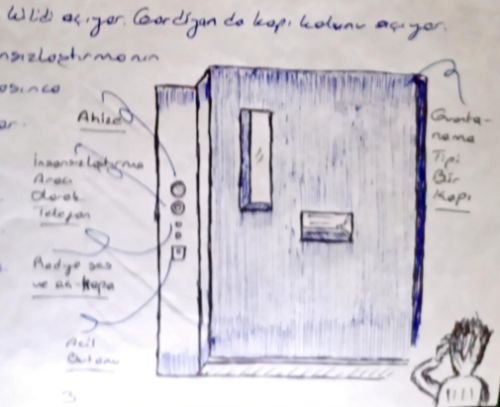 kilidi açıyor. Gardiyan da kapı kolunu açıyor.
Ahize
İnsansızlaştırma
Aracı
Olarak
Telefon
Radyo ses
ve aç-kapa
Acil
Butonu
Guanta-
nama
Tipi
Bir
Kapı
3